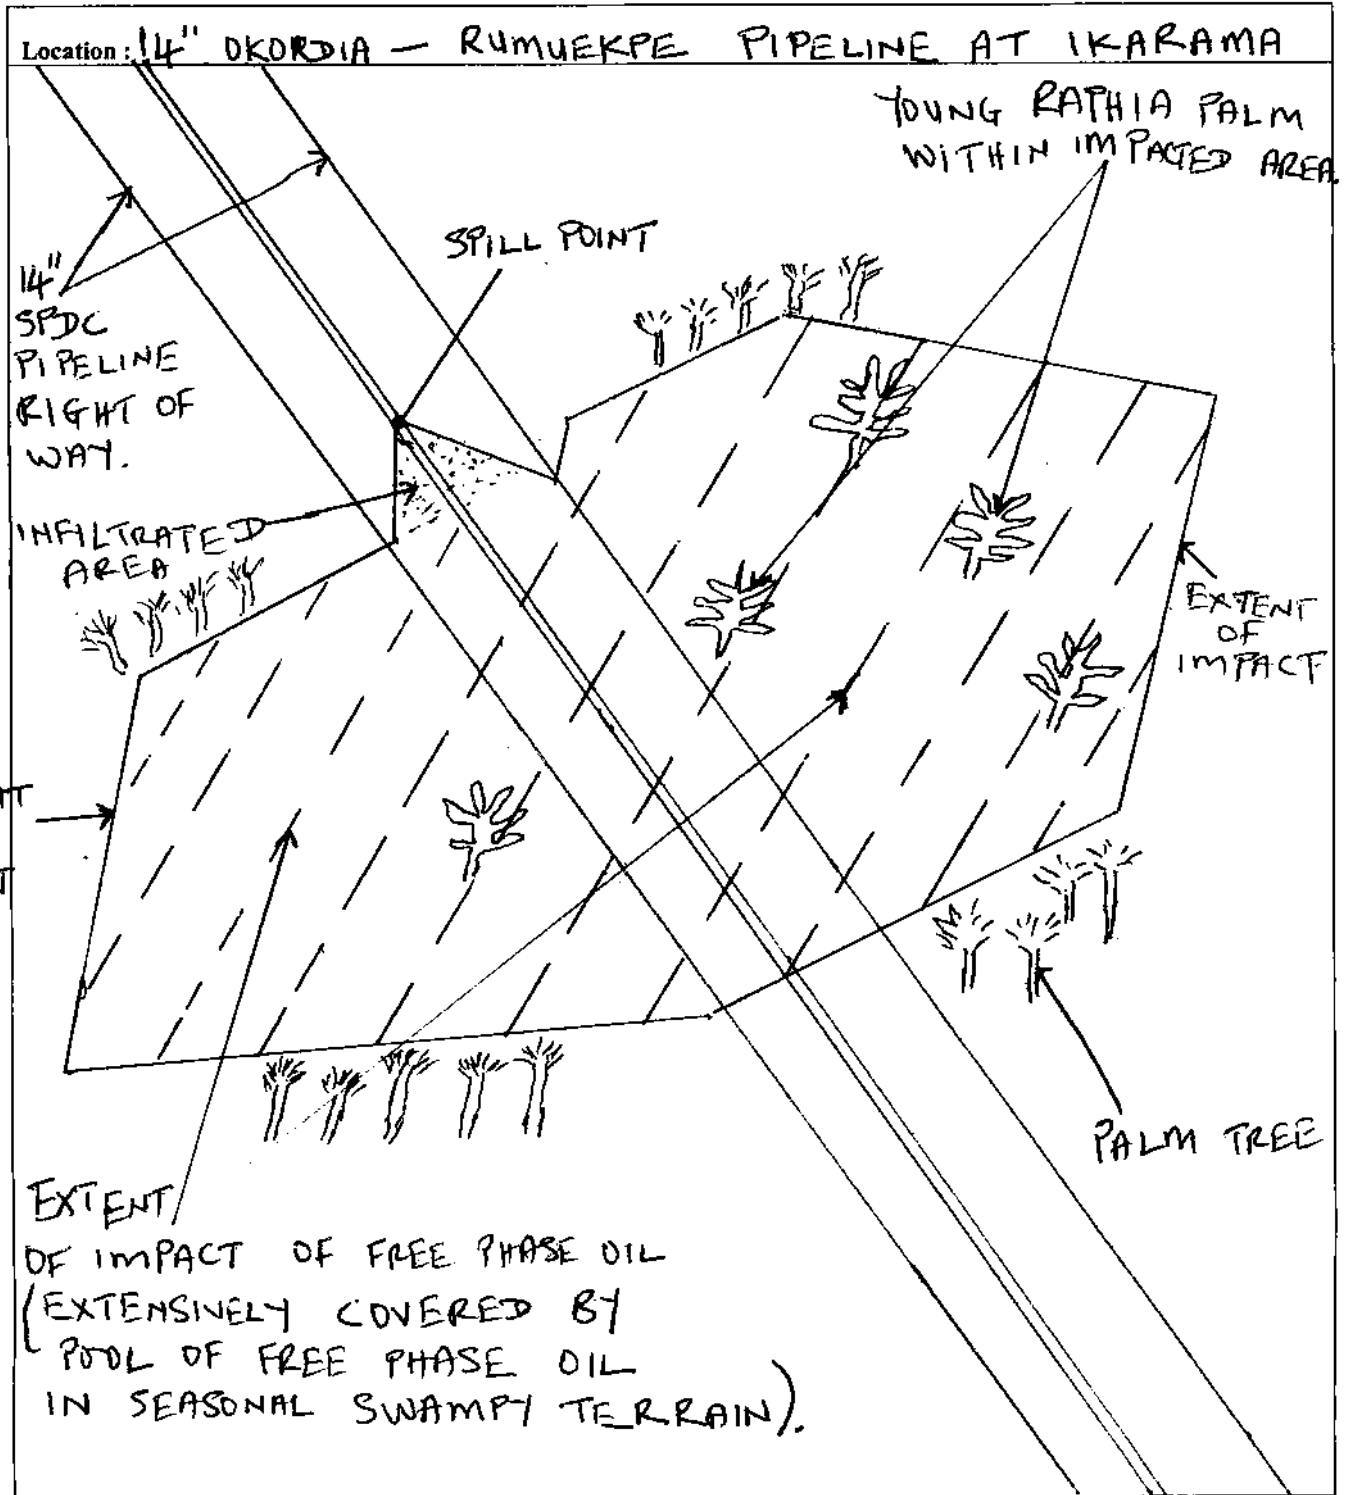 Location : 14" OKORDIA — RUMUEKPE PIPELINE AT IKARAMA
YOUNG RAPHIA PALM
WITHIN IMPACTED AREA.
SPILL POINT
14"
SPDC
PIPELINE
RIGHT OF
WAY.
INFILTRATED
AREA
EXTENT
OF
IMPACT
PALM TREE
EXTENT
OF IMPACT OF FREE PHASE OIL
(EXTENSIVELY COVERED BY
POOL OF FREE PHASE OIL
IN SEASONAL SWAMPY TERRAIN).